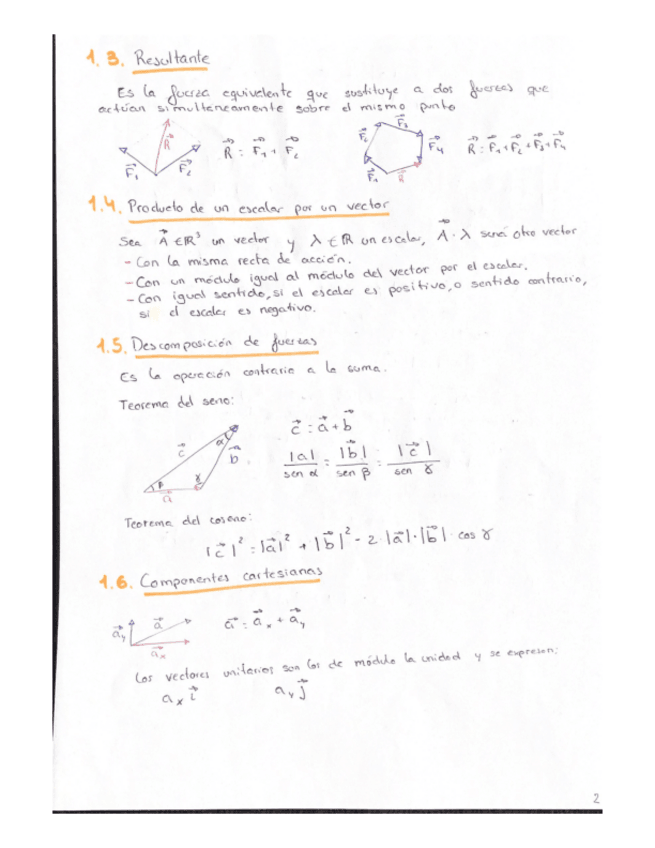 1.3. Resultante
Es la fuerza equivalente que sustituye a dos fuerzas que
actúan simultaneamente sobre el mismo punto
F⃗₁ R⃗ F⃗₂ R⃗ : F⃗₁ + F⃗₂
F⃗₁ F⃗₂ F⃗₃ F⃗₄ R⃗ R⃗ : F⃗₁+F⃗₂+F⃗₃+F⃗₄
1.4. Producto de un escalar por un vector
Sea A⃗ ∈ ℝ³ un vector y λ ∈ ℝ un escalar, A⃗ · λ será otro vector
- Con la misma recta de acción.
- Con un módulo igual al módulo del vector por el escalar.
- Con igual sentido, si el escalar es positivo, o sentido contrario,
si el escalar es negativo.
1.5. Descomposición de fuerzas
Es la operación contraria a la suma.
Teorema del seno:
c⃗ α b⃗ β γ a⃗
c⃗ : a⃗ + b⃗
|a| / sen α = |b⃗| / sen β = |c⃗| / sen γ
Teorema del coseno:
|c⃗|² : |a⃗|² + |b⃗|² - 2·|a⃗|·|b⃗| · cos γ
1.6. Componentes cartesianas
a⃗y a⃗ a⃗x a⃗ : a⃗x + a⃗y
Los vectores unitarios son los de módulo la unidad y se expresan:
ax i⃗ ay j⃗
2